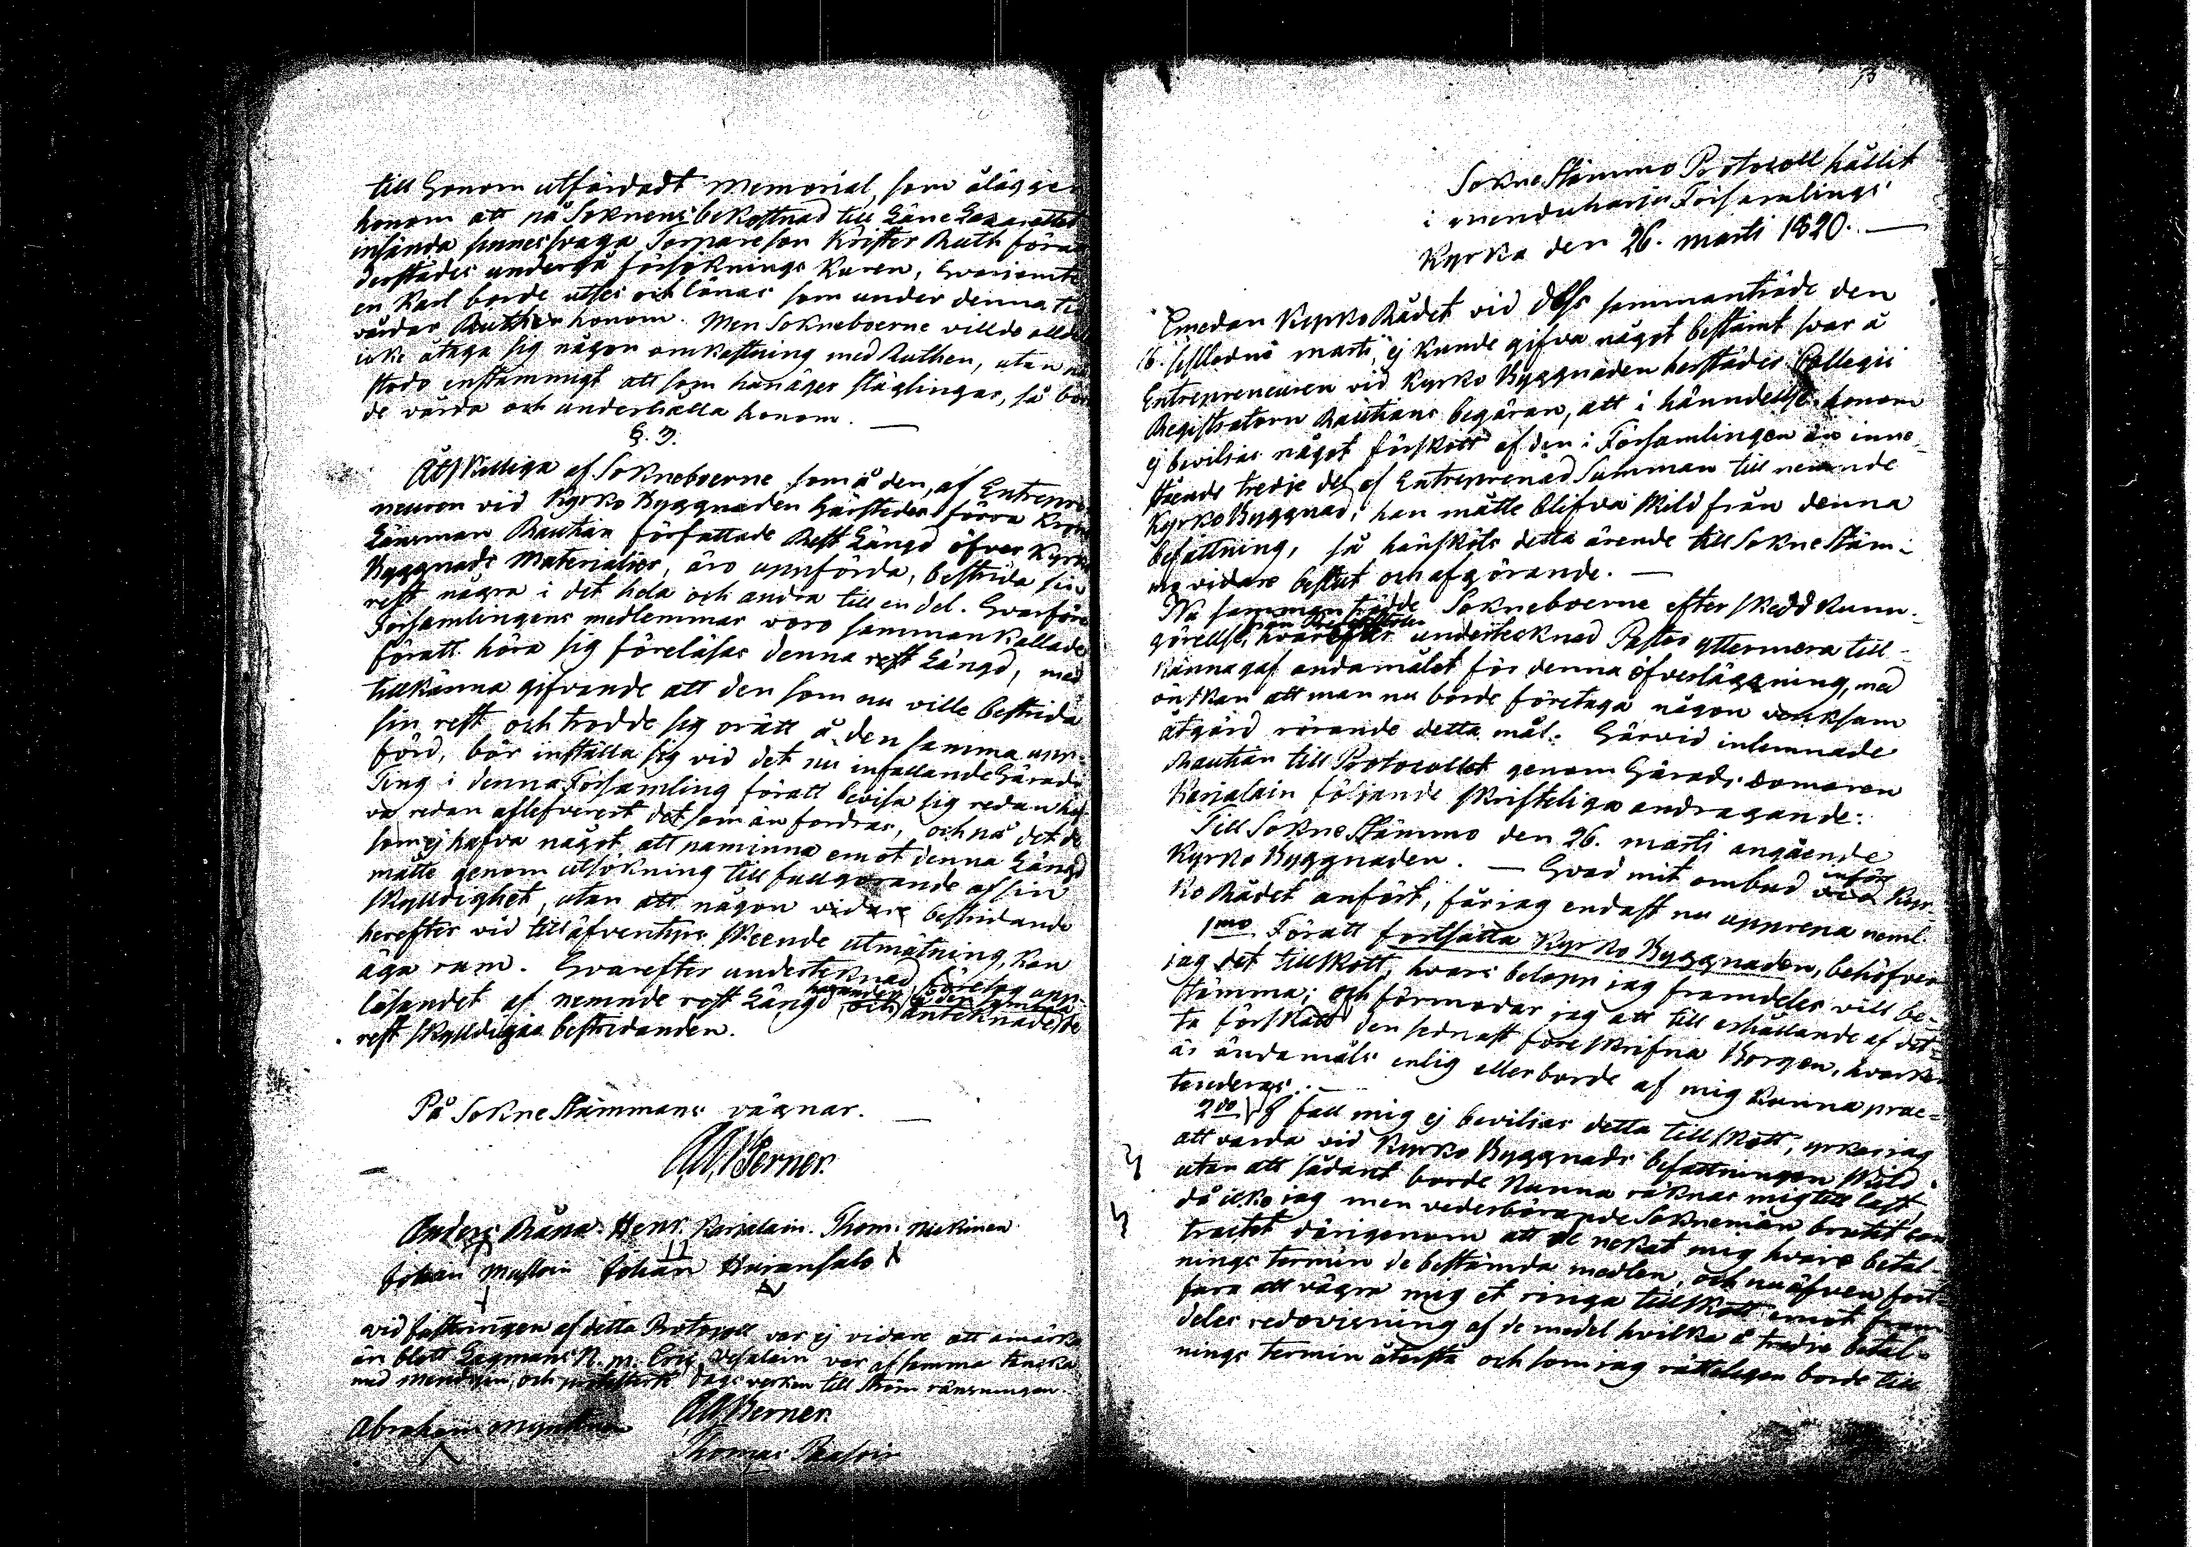 till honom utfärdadt Memorial, som ålägger
honom att på Soknens bekostnad till Läne Lazarettet
insända sinnessvaga Torpare son Krister Ruth föratt
derstädes undergå försöknings Kuren, hvarjemte
en Karl borde utses och lönas som under denna tid
vårdar honom. Men Sokneboerne villde alldeles
icke åtaga sig någon omkostning med Ruthen, utan
stodo enstämmigt att som han äger släglingar, så bör
de vårda och underhålla honom. —
§. 3.
Åtskilliga af Sokneboerne som å den, af Entrepre
neuren vid Kyrko Byggnaden härstedes förra Krono
Länsman Bautian författade Rest Längd öfver Kyrko
Byggnads Materialier, äro uppförda, bestrida sin
rest några i det hela och andra till en del. Hvarföre
Församlingens medlemmar voro samman kallade
föratt höra sig föreläsas denna rest Längd, med
tillkänna gifvande att den som nu ville bestrida
sin rest och trodde sig orätt å den samma upp-
förd, bör inställa sig vid det nu infallande Härads
Ting i denna Församling föratt bevisa sig redan haf
va redan aflefvererst det som än fordras, och på det de
som ej hafva något att påminna emot denna Längd
måtte genom utsökning till fullgörande af sin
skylldighet, utan att någon vidare bestridande
herefter vid till äfventyrs skeende utmätning, kan
äga rum. Hvarefter undertecknad företog upp-
läsandet af nemnde rest Längd och antecknade de
rest skylldigas bestridanden.
På Sokne Stämmans vägnar. —
A A Berner.
Anders Räna. Henr. Karjalain. Thom. Nukinen
Johan Mustoin Johan Huiransalo
vid justeringen af detta Protocoll var ej vidare att anmärka
än blott Legmans N. m. Eric Vesalain var af samma tancka
med menigen, och dags verken till ström ränsningen.
A A Berner.
Abraham
Thomas Paasoin
Sokne Stämmo Protocoll hållit
i Församlings
Kyrka den 26. Marti 1820. —
Emedan Kyrko Rådet vid dess sammanträde den
16. sistledne marti, ej kunde gifva något bestämt svar å
Entrepreneuren vid Kyrko Byggnaden herstädes Collegii
Registratorn Bautians begäran, att i hänndelse honom
ej beviljas något förskott af den i Församlingen än inne-
stående tredje del af Entreprenad Summan till nemnde
Kyrko Byggnad, han måtte blifva skild från denna
befattning, så hänsköts detta ärende till Sokne Stäm-
mo vidare beslut och afgörande. —
Nu sammanträdde Sokneboerne efter skedd kunn-
görellse, hvarefter undertecknad Pastor yttermera till-
känna gaf ändamålet för denna öfverläggning, med
önskan att man nu borde företaga någon verksam
åtgärd rörande detta mål: Härvid inlemnade
Bautian till Protocollet genom Härads domaren
Karjalain följande skrifteliga andragande:
Till Sokne Stämmo den 26. marti angående
Kyrko Byggnaden. — Hvad mit ombud inför Kyr-
ko Rådet anfört, får jag endast nu upprepa neml.
1mo Föratt fortsätta Kyrko Byggnaden, behöfver
jag det tillskott, hvars belopp jag framdeles vill be-
stämma; och förmodar jag att till erhållande af det-
ta förskott den sednast föreskrifna Borgen, hvarken
är ändamåls enlig eller borde af mig kunna præ-
tenderas. —
2do I fall mig ej beviljas detta tillskott, yrkar jag
att varda vid Kyrko Byggnads befattningen skild
utan att sådant borde kunna räknas mig till last,
då icke jag men vederbörande Soknemän brutit con
tractet därigenom att de nekat mig hvars betal-
nings termin de bestämda medlen, och nu äfven fort-
fara att vägra mig et ringa tillskott emot fram-
deles redovisning af de medel hvilka å tredje betal-
nings termin återstå och som jag rätteligen borde till